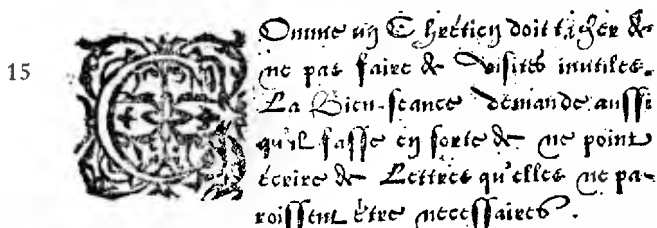 15
Comme un Chrétien doit tâcher de
ne pas faire de visites inutiles.
La Bien-seance demande aussi
qu'il fasse en sorte de ne point
écrire de Lettres qu'elles ne pa-
roissent être necessaires.